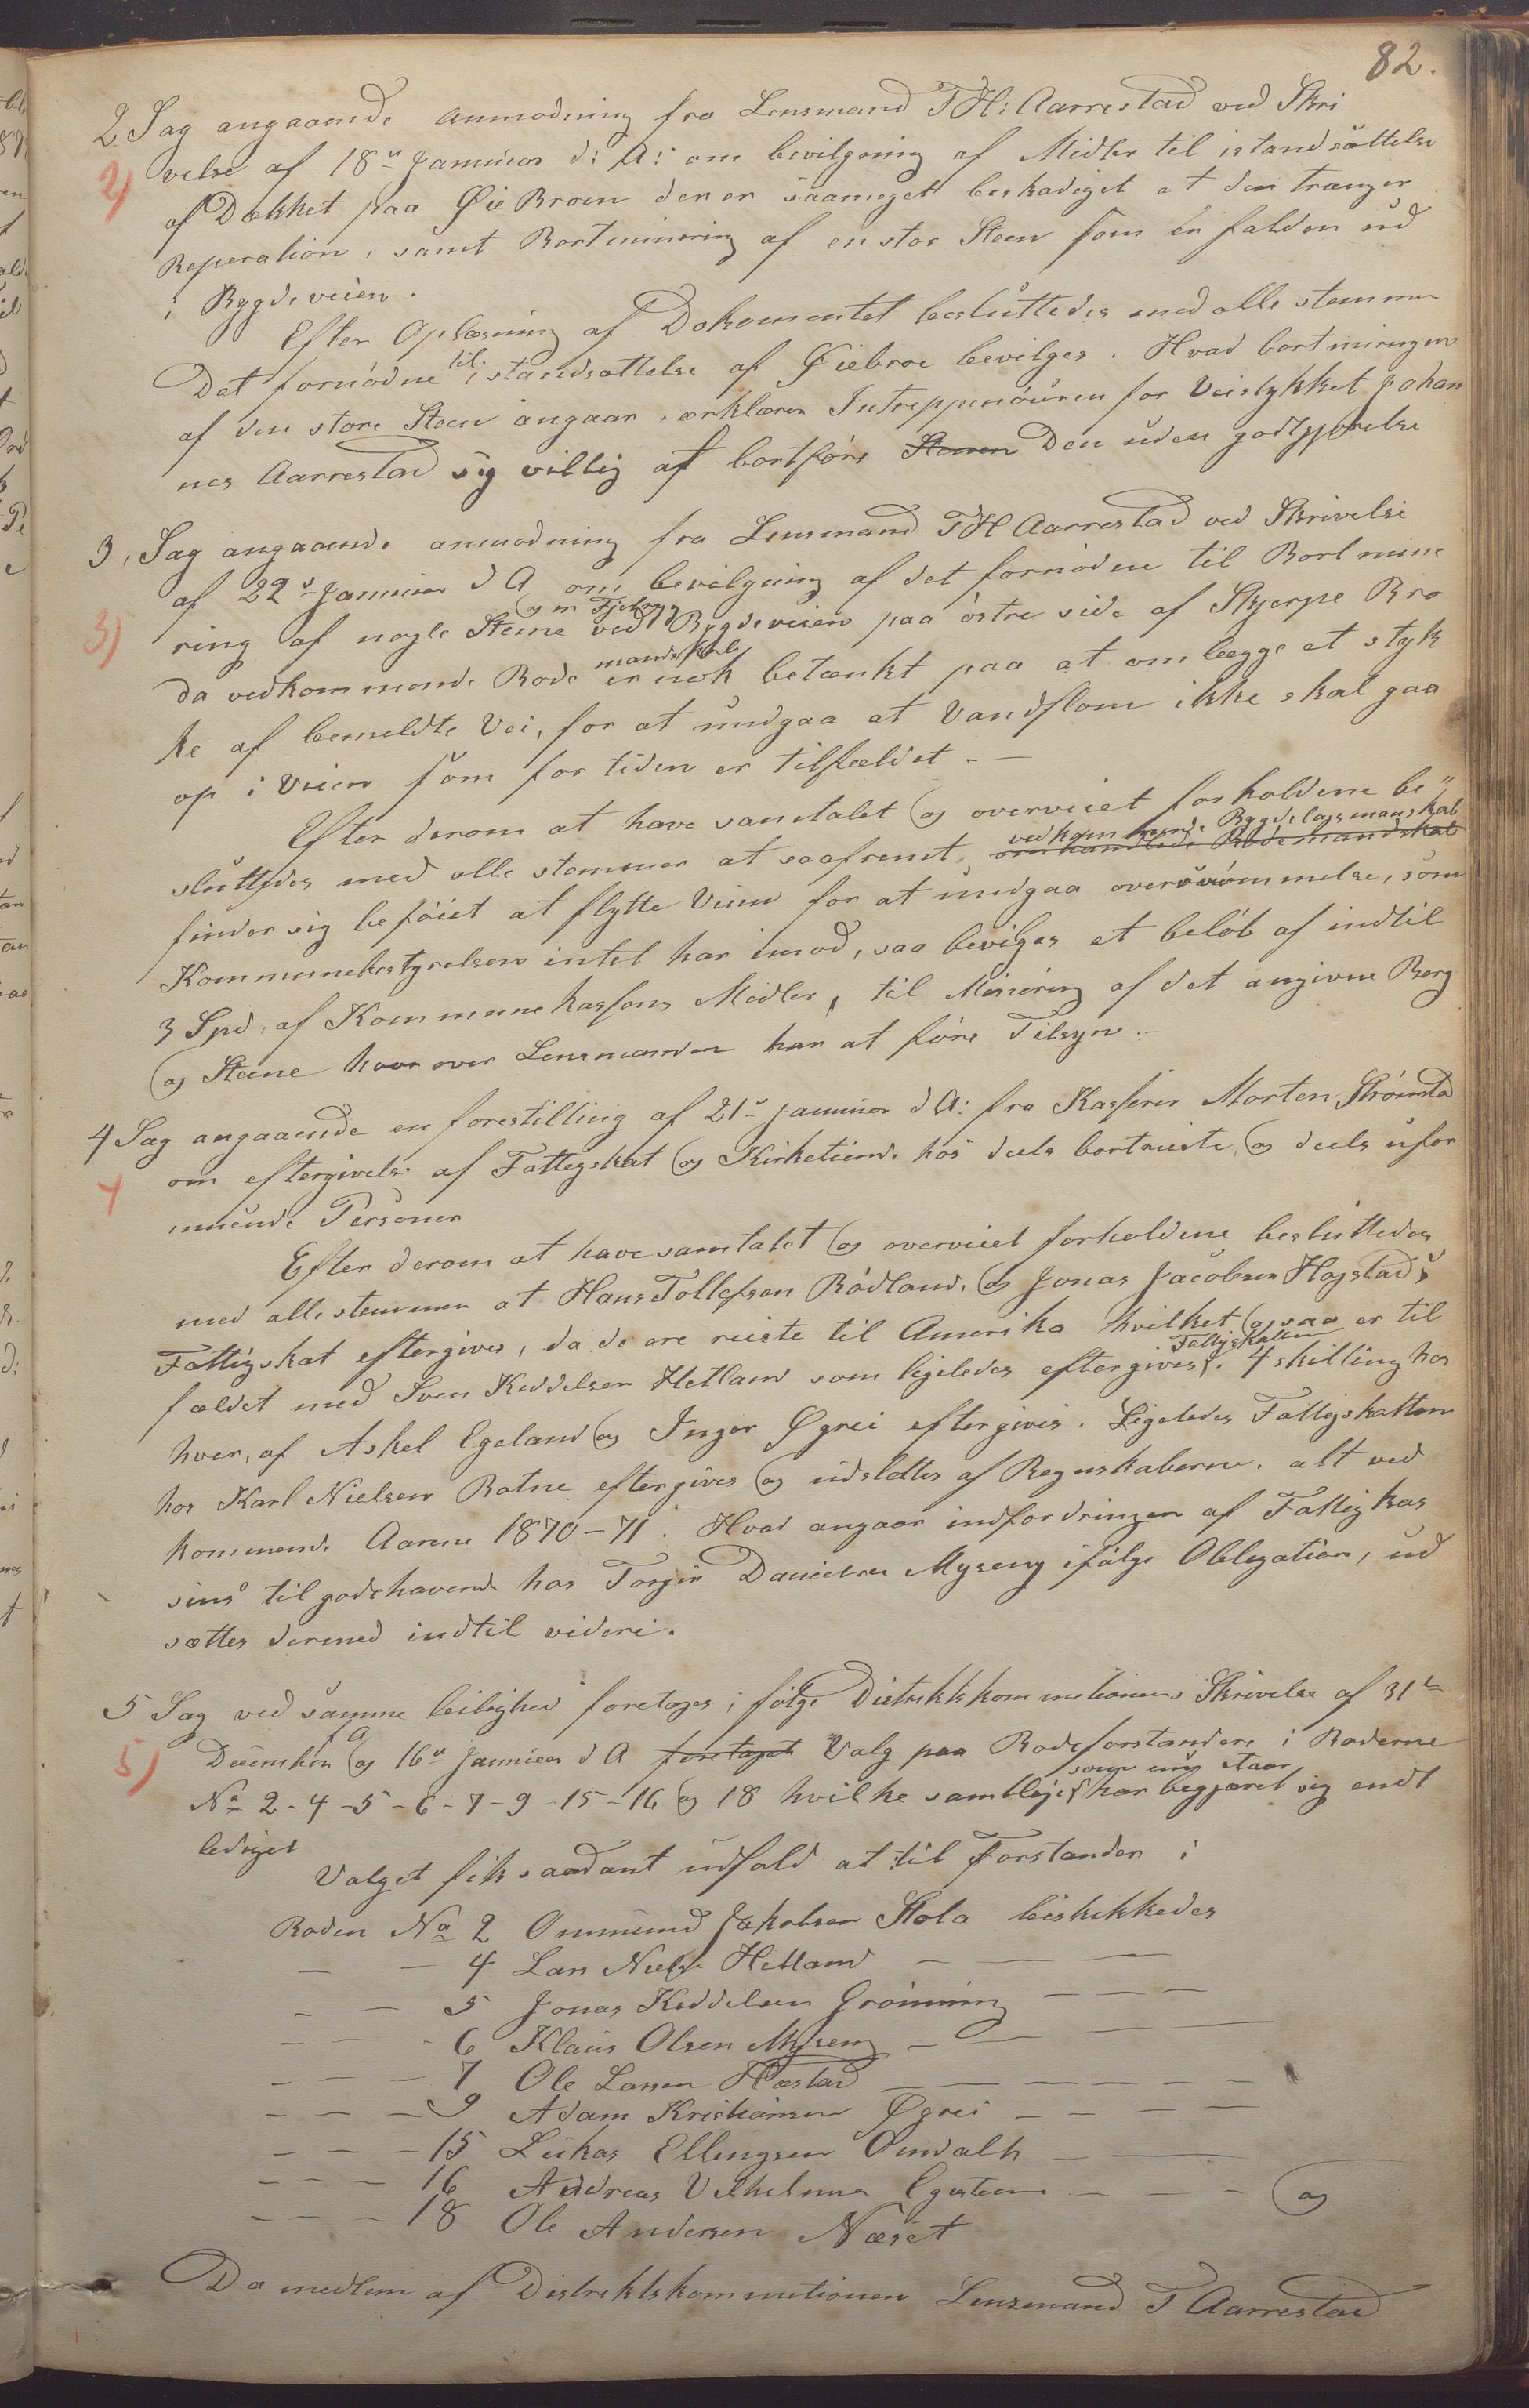 82.
2 Sag angaaende anmodning fra Lensmand T H: Aarrestad ved Skri
2) velse af 18de Januar d: A: om bevilgning af Midler til istandsættelse
af Dækket paa Øie Broen der er saameget beskadiget at den trænger
Reperation, samt Bortminering af en stor Steen som er falden ud
i Bygdeveien.
Efter Oplæsning af Dokomentet besluttedes med alle stemmer
Det fornødne til istandsættelse af Øiebroe bevilges. Hvad bortmiringen
af den store Steen angaar, ærklærer Intreppenøuren for Veistykket Johan
nes Aarrestad sig villig at bortføre Stenen Den uden godtgjørelse
3, Sag angaaende anmodning fra Lensmand T H Aarrestad ved Skrivelse
af 22de Januar d A om bevilgning af det fornødne til Bortmine
3) ring af nogle Stene og en Fjeldryg ved Bygdeveien paa østre side af Skjerpe Bro
da vedkommende Rode mandskab er nok betænkt paa at omlægge et styk
ke af bemeldte Vei, for at undgaa at Vandflom ikke skal gaa
op i Veien som for tiden er tilfældet. —
Efter derom at have samtalet og overveiet forholdene be"
sluttedes med alle stemmer at saafremt, omhandlede Rodemandskab vedkommende Bygdelagsmanskab
finder sig beføiet at flytte Veien for at undgaa oversvømmelse, som
Kommunebestyrelsen intet har imod, saa beviges et beløb af indtil
3 Spd, af Kommunekassens Midler, til Minering af det angivne Berg
og Stene hvor over Lensmanden har at føre Tilsyn. —
4 Sag angaaende en forestilling af 21de Januar d A: fra Kasserer Morten Strømsta
4 om eftergivelse af Fattegskat og Kirketiende hos deels bortreiste, og deels ufor
muende Personer
Efter derom at have samtalet og overveiet forholdene besluttedes
med alle stemmer at Hans Tollefsen Rødland, og Jonas Jacobsen Hogstads
Fattigskat eftergives, da de ere reiste til Amerika hvilket og saa er til
fældet med Sven Keddelsen Hetland som ligeledes eftergives Fattigskatten. 4 skilling hos
hver, af Askel Egeland og Inger Øgrei eftergives. Ligeledes Fattigskatten
hos Karl Nielsen Ratne eftergives og udslettes af Regnskaberne. alt ved
kommende Aarene 1870-71. Hvad angaar indfordringen af Fattigkas
sens tilgodehavende hos Torger Danielsen Myseng ifølge Obligation, ud
sættes dermed indtil videre.
5 Sag ved samme leilighed foretages i følge Distriktskommitionens Skrivelse af 31te
5) Deeember f A og 16de Januar d A foretaget Valg paa Rodeforstandere i Roderne
No 2-4-5-6-7-9-15-16 og 18 hvilke samtlige som nu staar har begjæret sig endt
lediget
Valget fik saadant udfald at til Forstander i
Roden No 2 Ommund Jakobsen Stola beskikkedes
— — 4 Lars Niels. Hetland — — —
— — 5 Jonas Keddelsen Grønning — — —
— — - 6 Klaus Olsen Myseng — — — —
— — — 7 Ole Larsen Hæstad — — — — —
— — — 9 Adam Kristiansen Øgrei — — — —
— — — 15 Lukas Ellingsen Omdalh — —
— — — 16 Andreas Velhelmsen Egesteen — — — og
— — — 18 Ole Andersen Næset
Da medlem af Distriktskommitionen Lensmand T Aarrestad